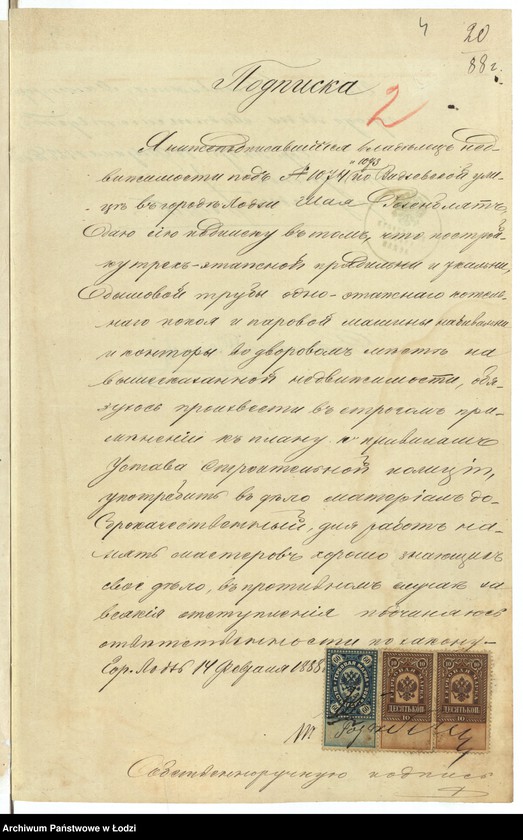 4
20
88 г.
Подписка
2
Я нижеподписавшійся владѣлецъ нед-
и 1073
вижимости подъ № 1074 по Видзевской ули-
цѣ въ городѣ Лодзи Шая
даю сію подписку въ томъ, что построй-
ку трехъ-этажной прядильни и
дымовой трубы одно-этажнаго котель-
наго покоя и паровой машины
и конторы во дворовомъ мѣстѣ на
вышесказанной недвижимости, обя-
зуюсь произвести въ строгомъ при-
мѣненіи къ плану и правиламъ
Устава Строительной полиціи,
употребить въ дѣло матеріалъ до-
брокачественный, для работъ на-
нять мастеровъ хорошо знающихъ
свое дѣло, въ противномъ случаѣ за
всякія отступленія подчиняюсь
отвѣтственности по закону
Гор. Лодзь 14 Февраля 1888
60 60
ДЕСЯТЬ КОП.
10
ДЕСЯТЬ КОП.
10
Собственноручную подпись
Archiwum Państwowe w Łodzi